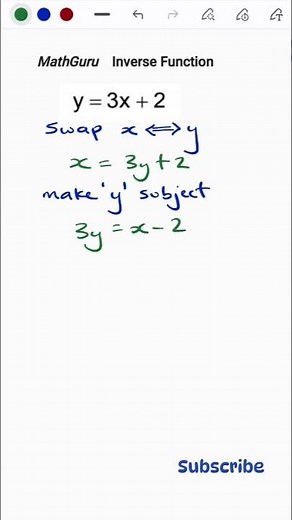 MathGuru Inverse Function
y = 3x + 2
Swap x ⟺ y
x = 3y + 2
make 'y' subject
3y = x - 2
Subscribe